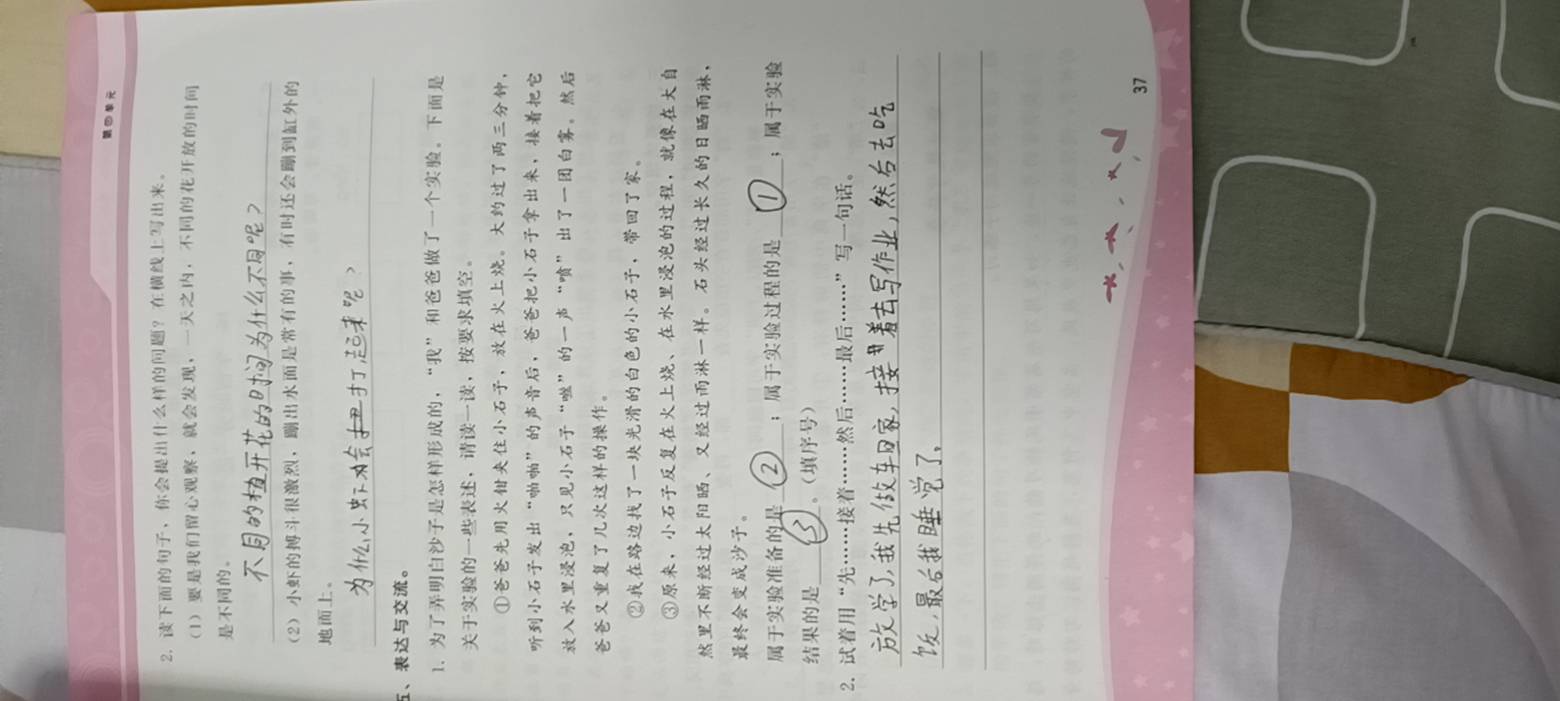 第四单元
2. 读下面的句子，你会提出什么样的问题？在横线上写出来。
（1）要是我们留心观察，就会发现，一天之内，不同的花开放的时间
是不同的。
不同的植开花的时间为什么不同呢？
（2）小虾的搏斗很激烈，蹦出水面是常有的事，有时还会蹦到缸外的
地面上。
为什么小虾会打起来呢？
五、表达与交流。
1. 为了弄明白沙子是怎样形成的，“我”和爸爸做了一个实验。下面是
关于实验的一些表述，请读一读，按要求填空。
①爸爸先用火钳夹住小石子，放在火上烧。大约过了两三分钟，
听到小石子发出“啪啪”的声音后，爸爸把小石子拿出来，接着把它
放入水里浸泡，只见小石子“嗞”的一声“喷”出了一团白雾。然后
爸爸又重复了几次这样的操作。
②我在路边找了一块光滑的白色的小石子，带回了家。
③原来，小石子反复在火上烧、在水里浸泡的过程，就像在大自
然里不断经过太阳晒、又经过雨淋一样。石头经过长久的日晒雨淋，
最终会变成沙子。
属于实验准备的是 ② ；属于实验过程的是 ① ；属于实验
结果的是 ③ 。（填序号）
2. 试着用“先……接着……然后……最后……”写一句话。
放学了，我先做车回家，接着去写作业，然后去吃
饭，最后我睡觉了。
37